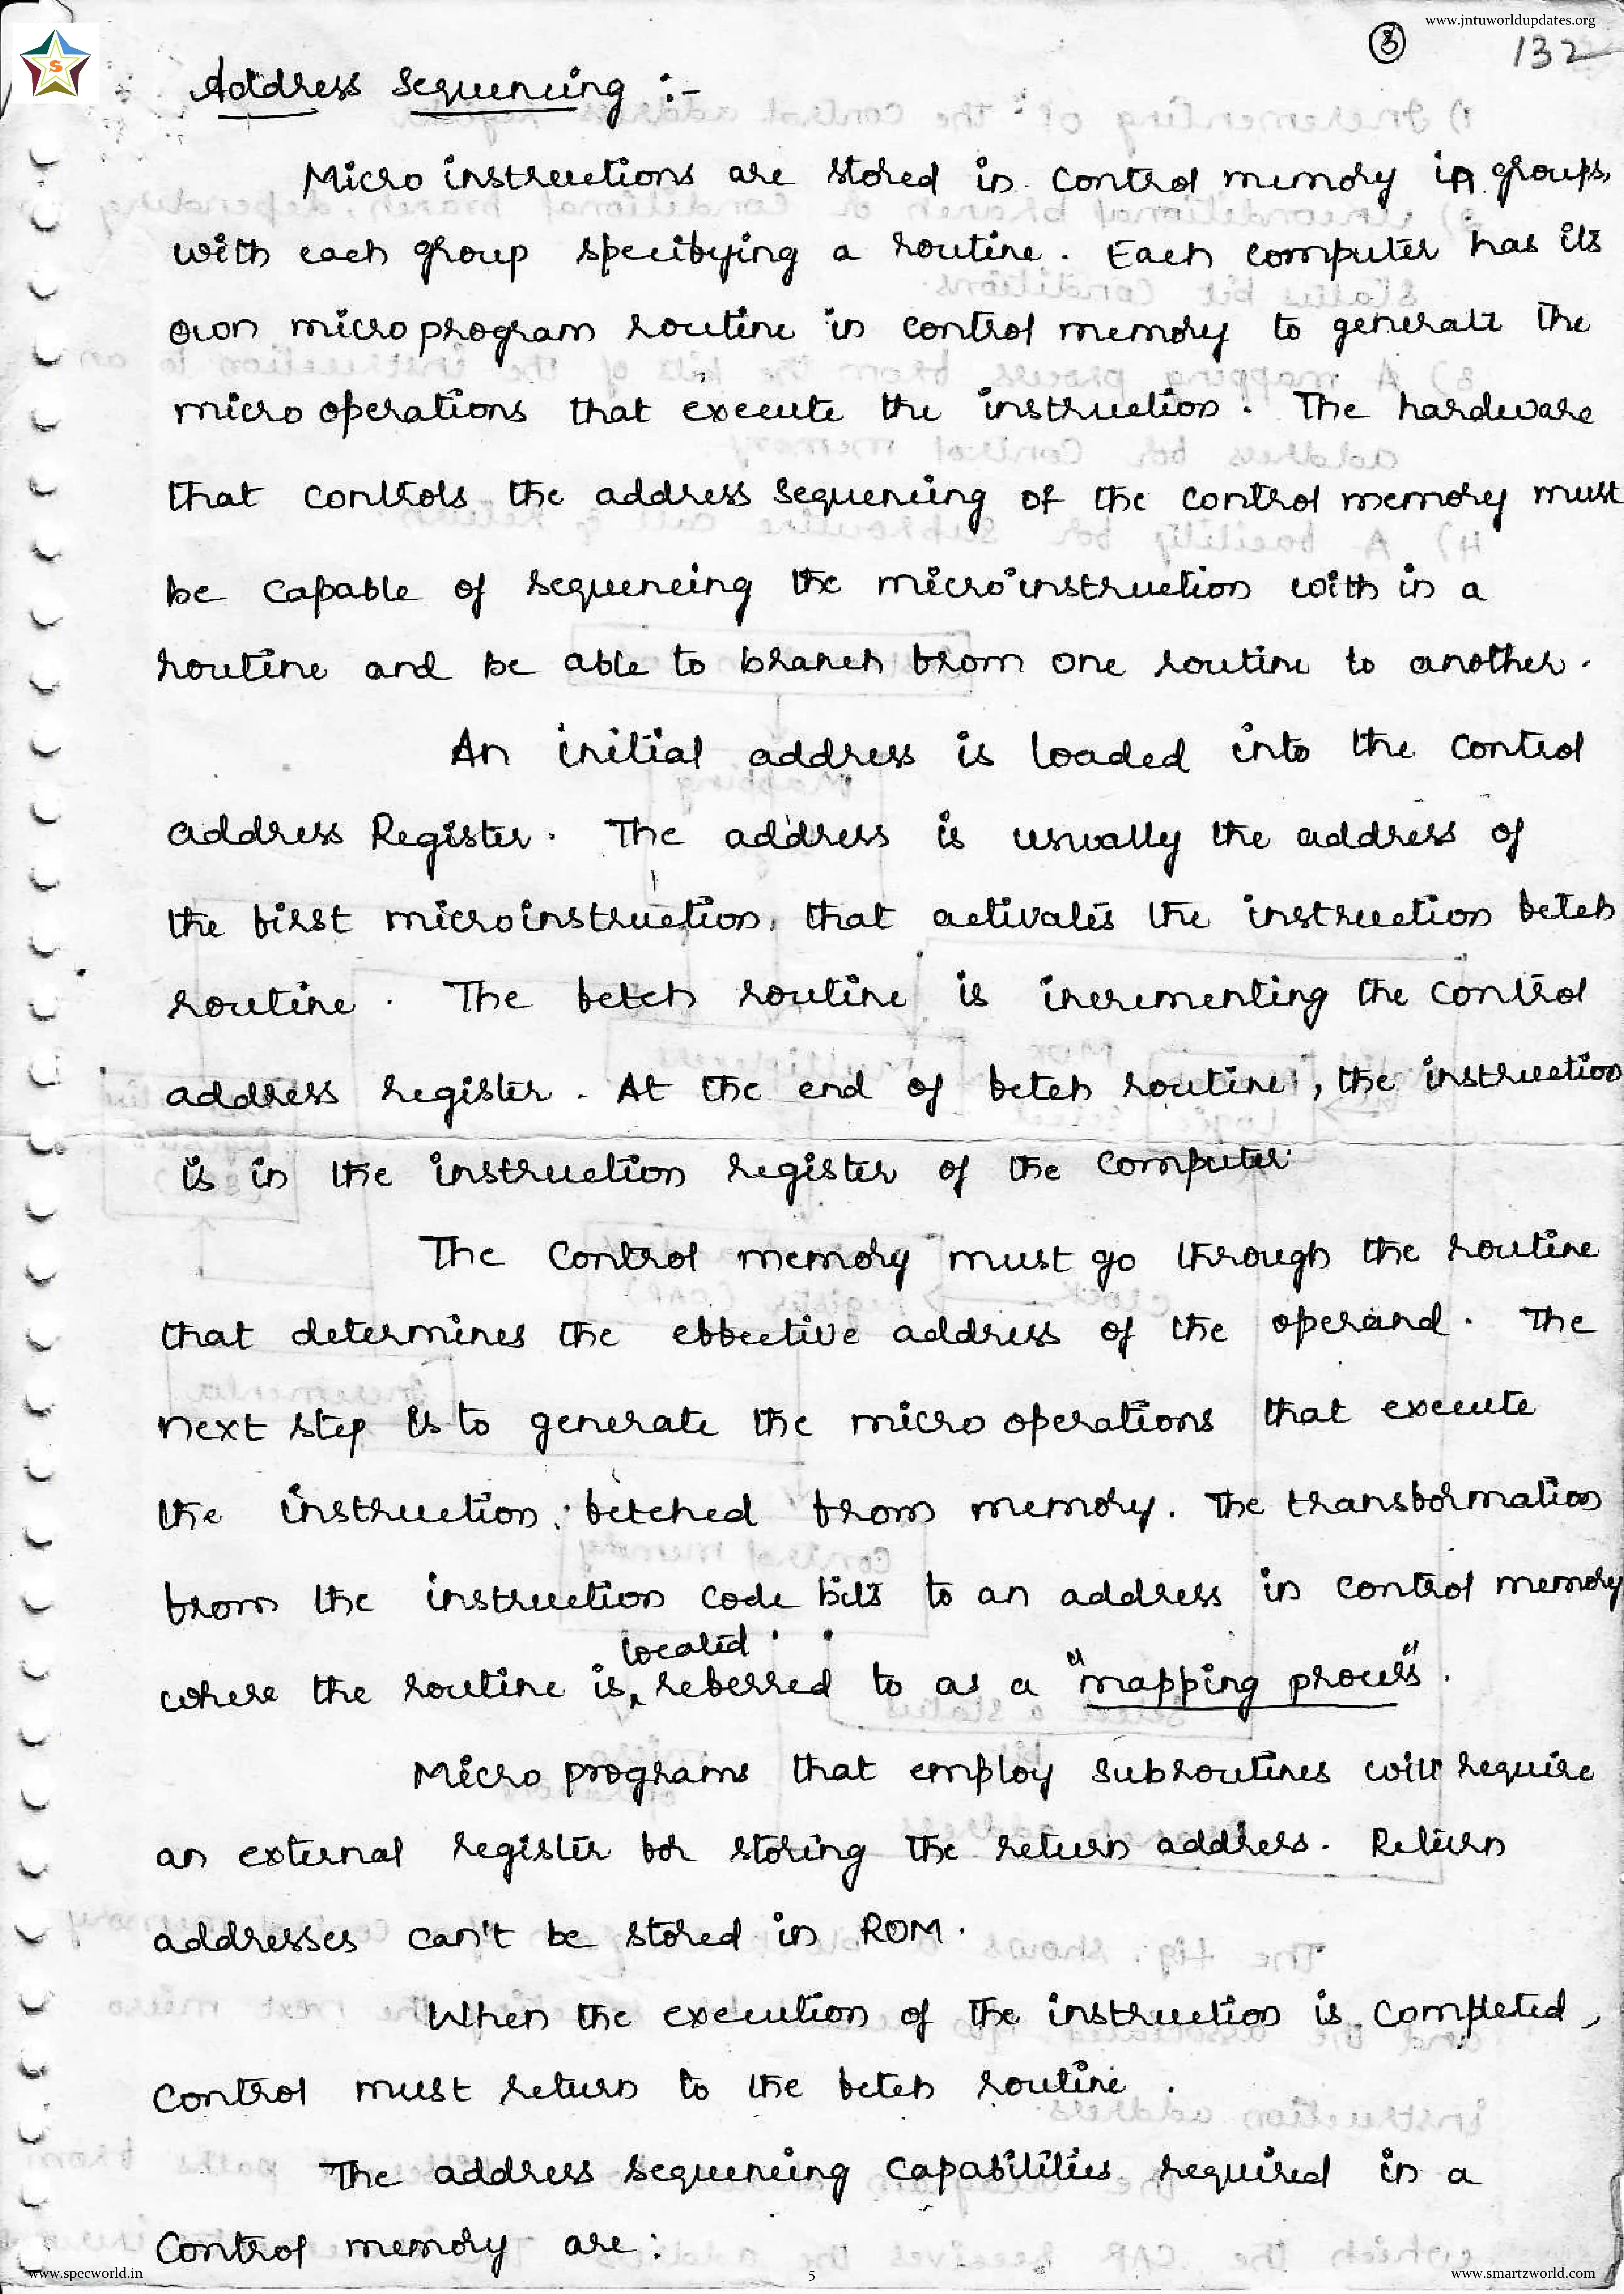 www.jntuworldupdates.org
3
132
S
Address Sequencing :-
Micro instructions are stored in control memory in groups,
with each group specifying a routine. Each computer has its
own micro program routine in control memory to generate the
micro operations that execute the instruction. The hardware
that controls the address sequencing of the control memory must
be capable of sequencing the microinstruction with in a
routine and be able to branch from one routine to another.
An initial address is loaded into the control
address Register. The address is usually the address of
the first microinstruction, that activates the instruction fetch
routine. The fetch routine is incrementing the control
address register. At the end of fetch routine, the instruction
is in the instruction register of the computer.
The control memory must go through the routine
that determines the effective address of the operand. The
next step is to generate the micro operations that execute
the instruction, fetched from memory. The transformation
from the instruction code bits to an address in control memory
located
where the routine is referred to as a "mapping process".
Micro programs that employ subroutines will require
an external register for storing the return address. Return
addresses can't be stored in ROM.
When the execution of the instruction is completed,
control must return to the fetch routine.
The address sequencing capabilities required in a
control memory are:
www.specworld.in
5
www.smartzworld.com